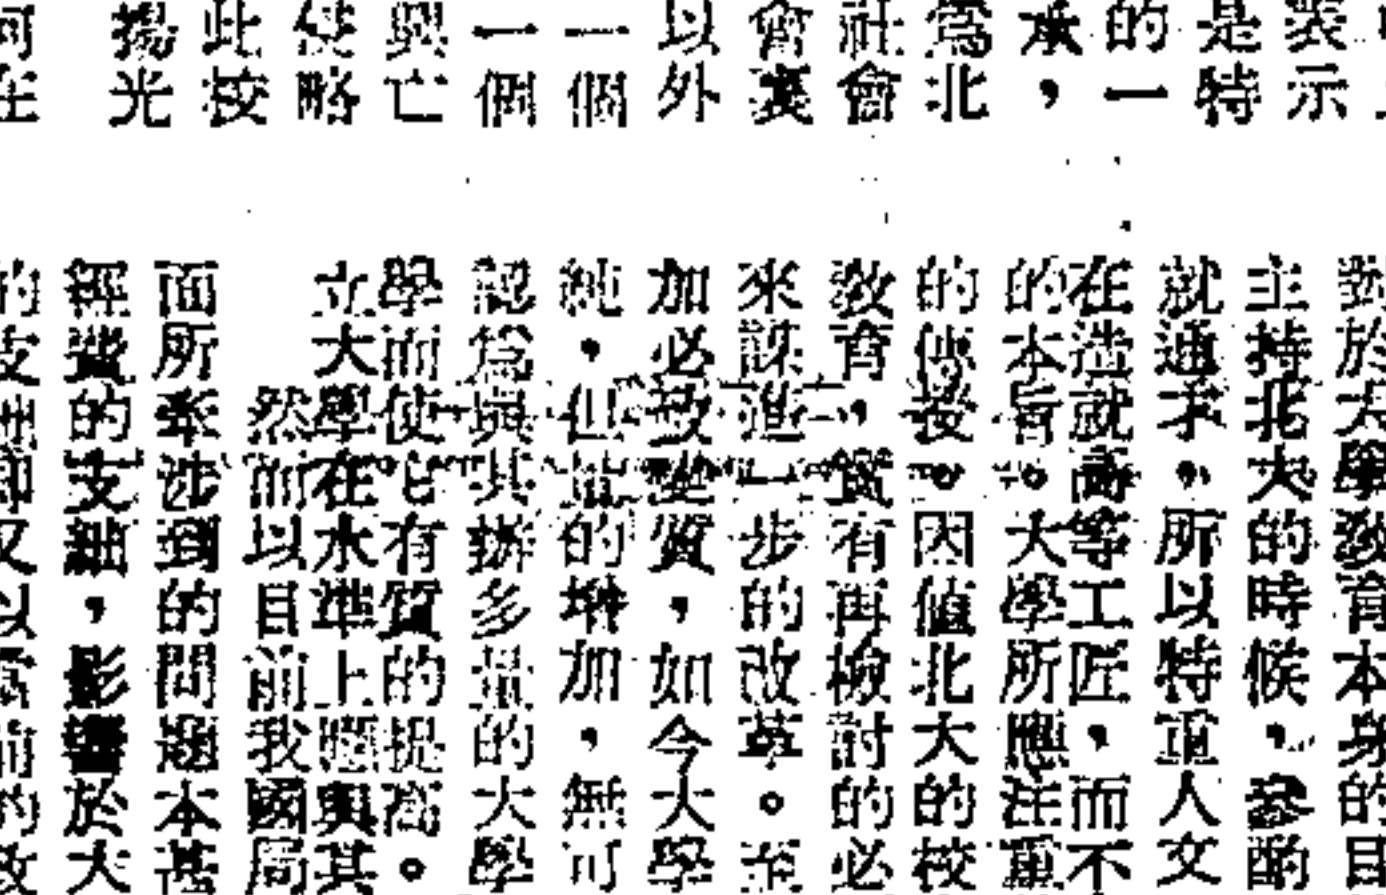 裝示
是特
的一
承，
爲北
社會
會裏
以外
一個
一個
興亡
使略
此校
揚光
對於大學教育本身的目
主持北大的時候，參酌
就通才，所以特重人文
在造就高等工匠，而不
的本旨。大學所應注重
的傳授。因值北大的校
教育，實有再檢討的必
來謀進一步的改革。至
加必改變質，如今大學
純，但量的增加，無可
認爲與其辦多量的大學
學而使它有質的提高。
立大學在水準上應與其
然而以目前我國局
面所牽涉到的問題本甚
經費的支絀，影響於大